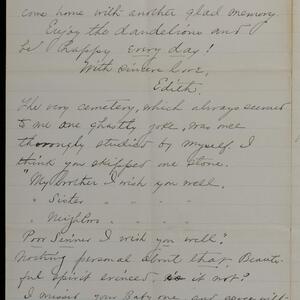 come home with another glad memory.
Enjoy the dandelions and
be happy every day!
With sincere love,
Edith.
The very cemetery, which always seemed
to me one ghastly joke, was well
thoroughly studied by myself. I
think you skipped one stone.
"My Brother I wish you well.
" Sister " " " "
" Neighbor " " " "
Poor Sinner I wish you well."
Nothing personal about that Beauti-
ful spirit evinced, is it not?
I missed your baby one and